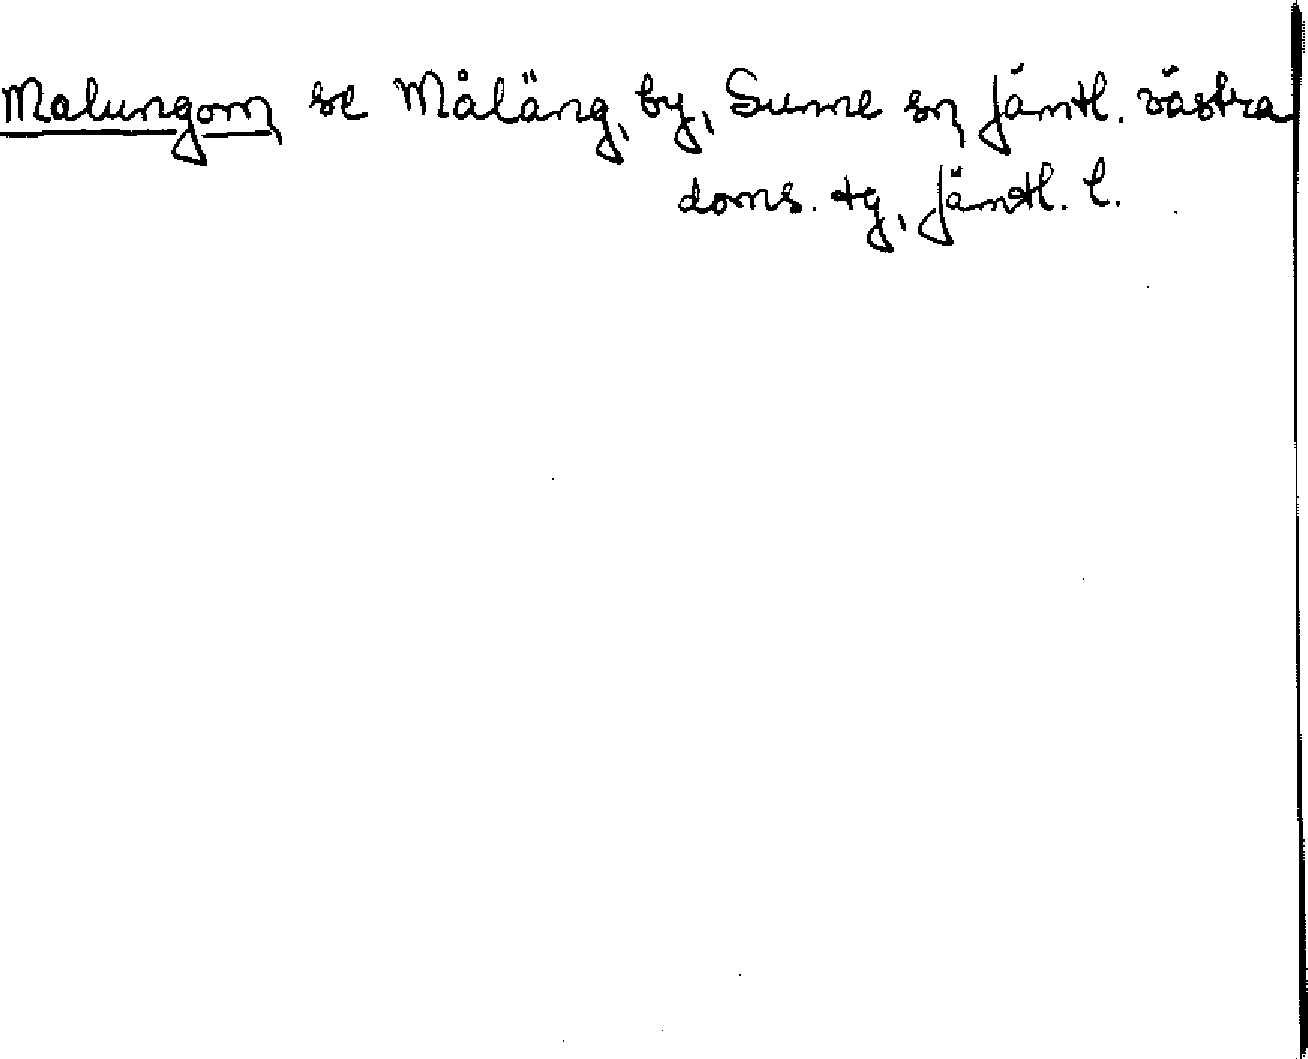 Malungom, se Måläng, by, Sunne sn, Jämtl. västra
doms. tg, Jämtl. l.